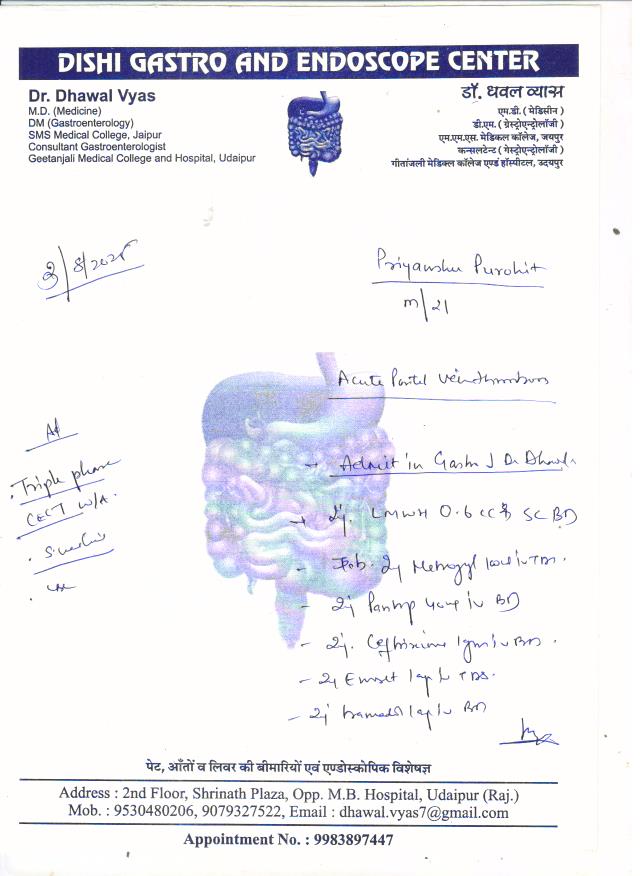 DISHI GASTRO AND ENDOSCOPE CENTER
Dr. Dhawal Vyas
M.D. (Medicine)
DM (Gastroenterology)
SMS Medical College, Jaipur
Consultant Gastroenterologist
Geetanjali Medical College and Hospital, Udaipur
डॉ. धवल व्यास
एम.डी. ( मेडिसीन )
डी.एम. ( ग्रेस्ट्रोएन्ट्रोलॉजी )
एम.एम.एस. मेडिकल कॉलेज, जयपुर
कन्सलटेन्ट ( गेस्ट्रोएन्ट्रोलॉजी )
गीतांजली मेडिक्ल कॉलेज एण्ड हॉस्पीटल, उदयपुर
Priyanshu Purohit
M/21
Acute Portal Vein thrombosis
Triple phase
CECT W/A.
- Admit in Gastro
LMWH 0.6 cc SC BD
- Inj Metrogyl TDS.
- Inj Pantop 40mg iv BD
- Inj. 1gm iv BD.
- Inj Emset 1amp iv TDS.
- Inj tramadol 1amp iv BD
पेट, आँतों व लिवर की बीमारियों एवं एण्डोस्कोपिक विशेषज्ञ
Address : 2nd Floor, Shrinath Plaza, Opp. M.B. Hospital, Udaipur (Raj.)
Mob. : 9530480206, 9079327522, Email : dhawal.vyas7@gmail.com
Appointment No. : 9983897447